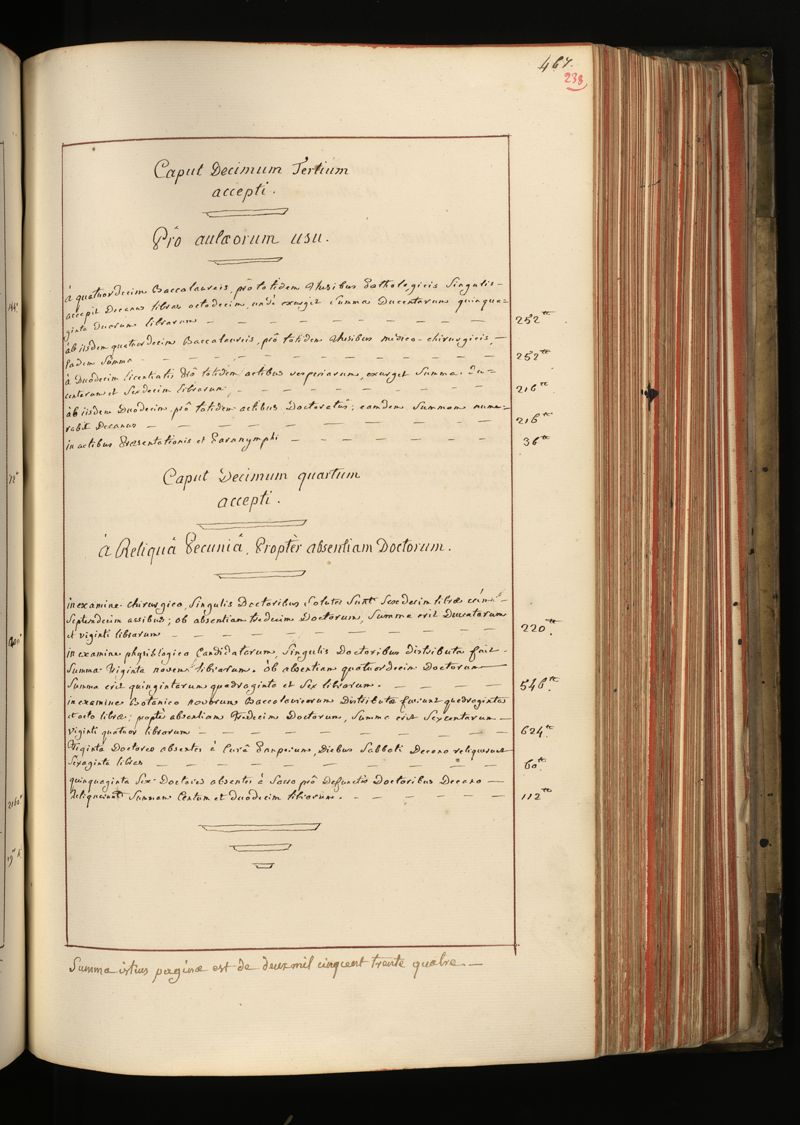 467.
238
Caput Decimum Tertium
accepti.
Prô aulæorum usu.
à quatuordecim Baccalaureis, prô totidem Thesibus Pathologicis Singulis-
accepit Decanus libras octodecim, undè exurgit Summa Ducentarum quinqua-
ginta duarum librarum — 252tt
àb iisdem quatuordecim Baccalaureis, prô totidem Thesibus medico-chirurgicis,
Eadem Summa — 252tt
à Duodecim licentiatis prô totidem actibus vesperiarum, exurget Summa Du-
centarum et Sexdecim librarum, — 216tt
àb iisdem Duodecim, prô totidem actibus Doctoratûs; eamdem Summam nume-
rabit Decanus — 216tt
in actibus Præsentationis et Paranymphi — 36tt
Caput Decimum quartum
accepti.
à Reliquâ Pecuniâ, Proptèr absentiam Doctorum.
in examine chirurgico, Singulis Doctoribus Solutæ Sunt Sexdecim libræ cùm
Septendecim assibus; ob absentiam tredecim Doctorum, Summa erit Ducentarum
et viginti librarum — 220tt.
in examine physiologico Candidatorum, Singulis Doctoribus distributa fuit
Summa Viginta novem librarum. òb absentiam quatuordecim Doctorum
Summa erit quingintarum quadraginta et Sex librarum. — 546tt.
in examine Botanico novorum Baccalaureorum Distributæ fuerunt quadraginta
et octo libræ; proptèr absentiam Tredecim Doctorum, Summa erit Sexcentarum
viginti quatuor librarum — 624tt.
Viginta Doctores absentes à Curâ Pauperum, Diebus Sabbati Decano reliquerunt
Sexaginta libras — 60tt.
quinquaginta Sex Doctores absentes à Sacro prô Defunctis Doctoribus Decano
Reliquerunt Summam Centum et duodecim librarum. — 112tt
Summa istius paginæ est de deux mil cinqcent trente quatre. —